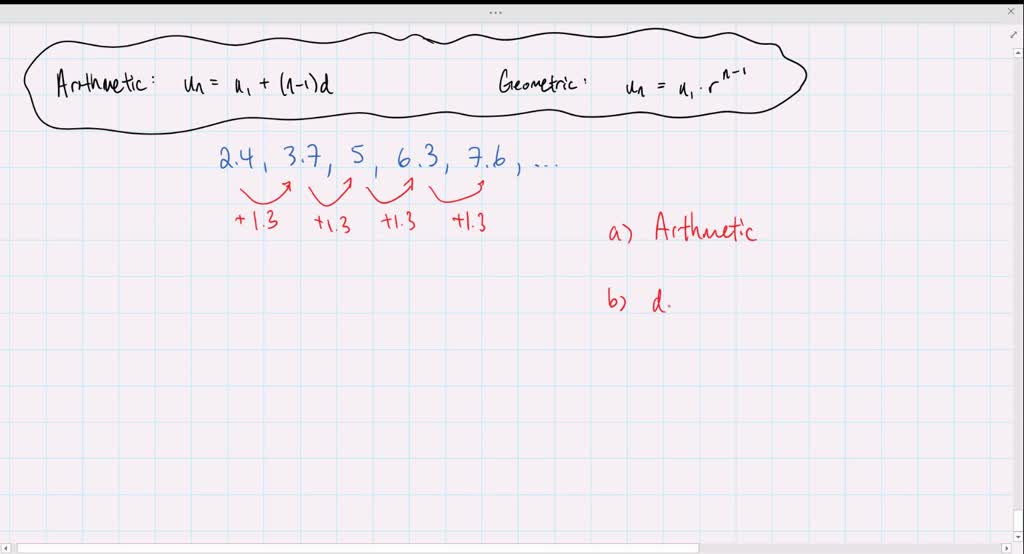 Arithmetic: uₙ = u₁ + (n-1)d
Geometric: uₙ = u₁ · rⁿ⁻¹
2.4, 3.7, 5, 6.3, 7.6, ...
+1.3 +1.3 +1.3 +1.3
a) Arithmetic
b) d.